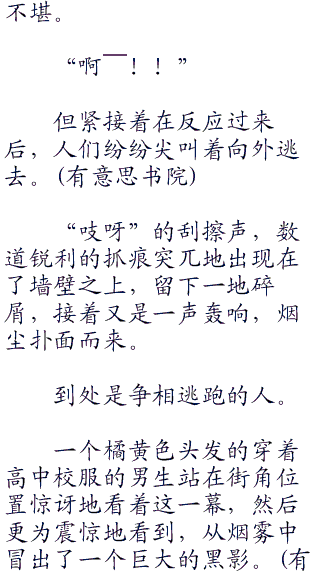 不堪。
“啊——！！”
但紧接着在反应过来
后，人们纷纷尖叫着向外逃
去。(有意思书院)
“吱呀”的刮擦声，数
道锐利的抓痕突兀地出现在
了墙壁之上，留下一地碎
屑，接着又是一声轰响，烟
尘扑面而来。
到处是争相逃跑的人。
一个橘黄色头发的穿着
高中校服的男生站在街角位
置惊讶地看着这一幕，然后
更为震惊地看到，从烟雾中
冒出了一个巨大的黑影。(有